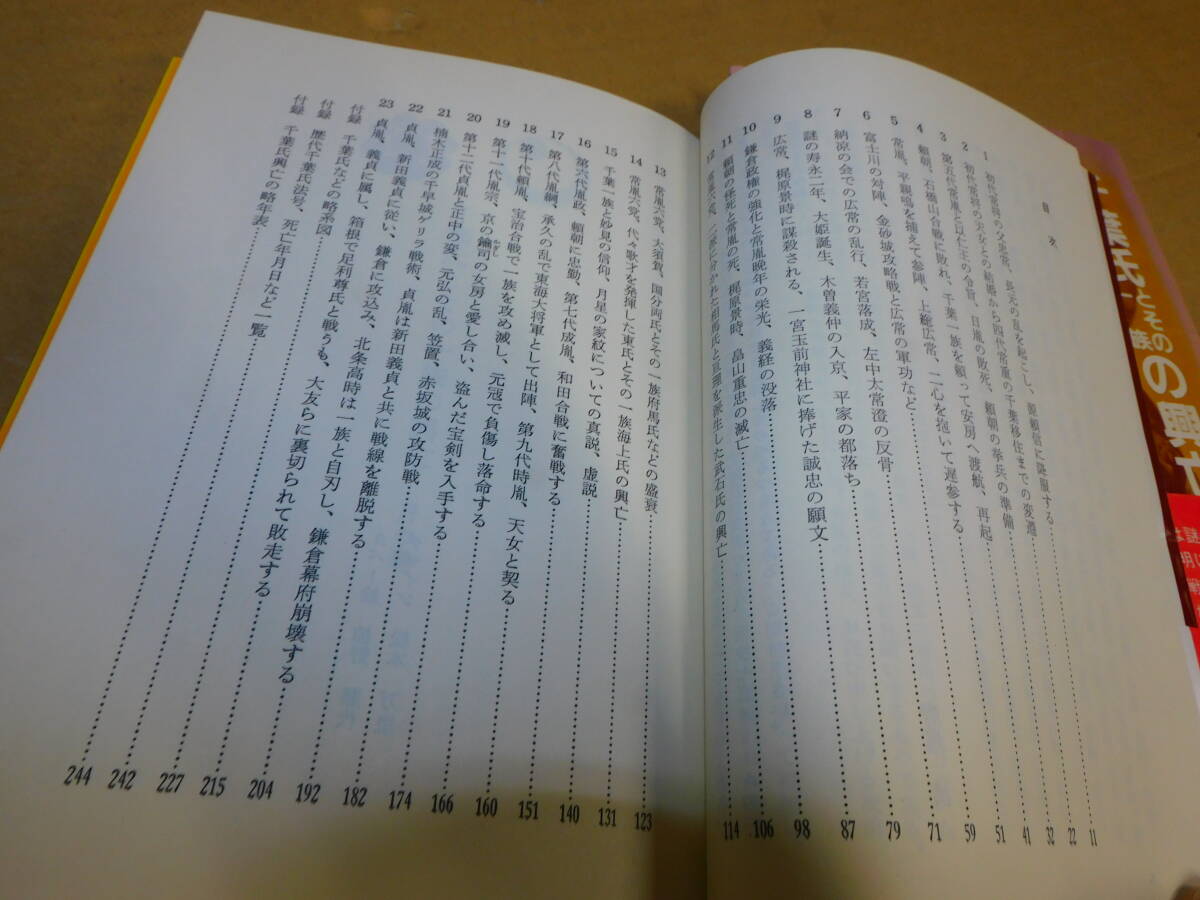 目次
1 初代常将の父忠常、長元の乱を起こし、源頼信に降服する 11
2 初代常将の天女との結婚から四代常重の千葉移住までの変遷 22
3 第五代常胤と以仁王の令旨、日胤の敗死、頼朝の挙兵の準備 32
4 頼朝、石橋山合戦に敗れ、千葉一族を頼って安房へ渡航、再起 41
5 常胤、平親政を捕えて参陣、上総広常、二心を抱いて遅参する 51
6 富士川の対陣、金砂城攻略戦と広常の軍功など 59
7 納涼の会での広常の乱行、若宮落成、左中太常澄の反骨 71
8 謎の寿永二年、大姫誕生、木曽義仲の入京、平家の都落ち 79
9 広常、梶原景時に謀殺される、一宮玉前神社に捧げた誠忠の願文 87
10 鎌倉政権の強化と常胤晩年の栄光、義経の没落 98
11 頼朝の怪死と常胤の死、梶原景時、畠山重忠の滅亡 106
12 常胤六党、二派に分かれた相馬氏と亘理を派生した武石氏の興亡 114
13 常胤六党、大須賀、国分両氏とその一族府馬氏などの盛衰 123
14 常胤六党、代々歌才を発揮した東氏とその一族海上氏の興亡 131
15 千葉一族と妙見の信仰、月星の家紋についての真説、虚説 140
16 第六代胤政、頼朝に忠勤、第七代成胤、和田合戦に奮戦する 151
17 第八代胤綱、承久の乱で東海大将軍として出陣、第九代時胤、天女と契る 160
18 第十代頼胤、宝治合戦で一族を攻め滅し、元冠で負傷し落命する 166
19 第十一代胤宗、京の鑰司の女房と愛し合い、盗んだ宝剣を入手する 174
20 第十二代貞胤と正中の変、元弘の乱、笠置、赤坂城の攻防戦 182
21 楠木正成の千早城ゲリラ戦術、貞胤は新田義貞と共に戦線を離脱する 192
22 貞胤、新田義貞に従い、鎌倉に攻込み、北条高時は一族と自刃し、鎌倉幕府崩壊する 204
23 貞胤、義貞に属し、箱根で足利尊氏と戦うも、大友らに裏切られて敗走する 215
付録 千葉氏などの略系図 227
付録 歴代千葉氏法号、死亡年月日など一覧 242
付録 千葉氏興亡の略年表 244
葉氏とその一族の興